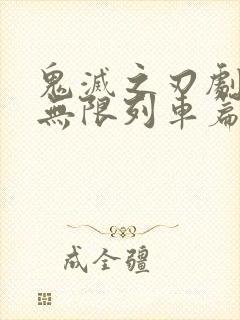 鬼滅之刃劇
無限列車篇
成全疆